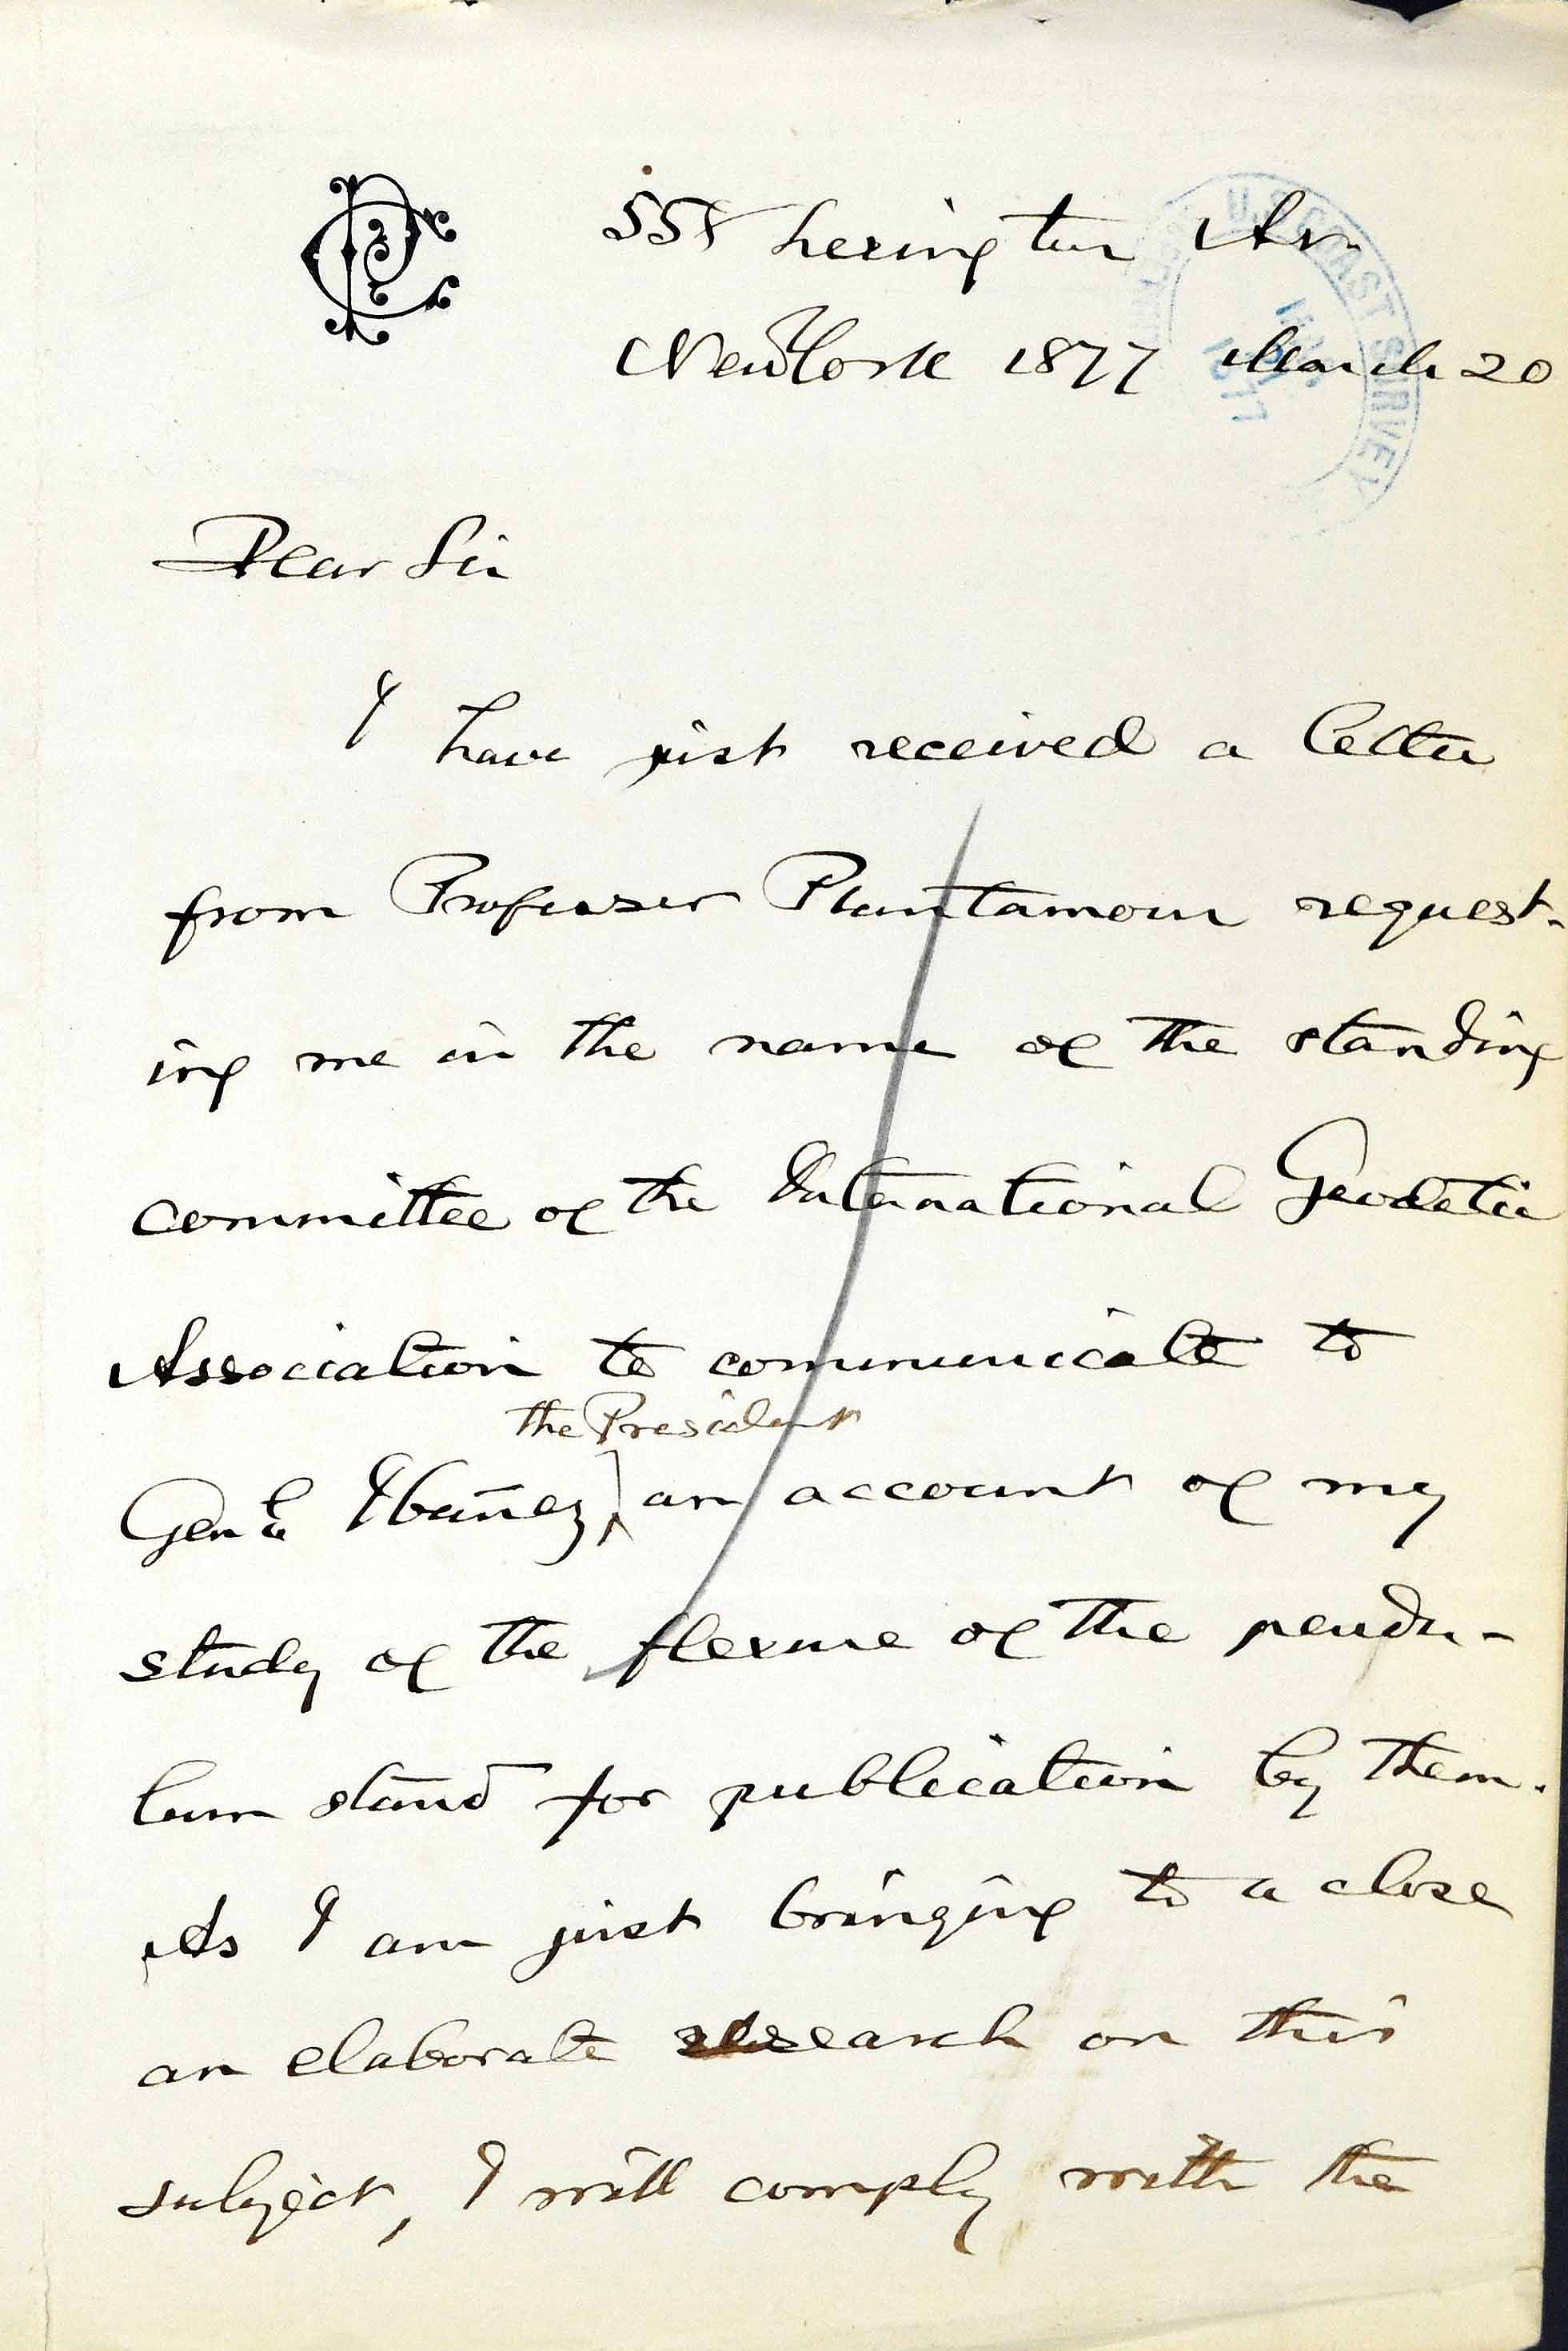 558 Lexington Av.
New York 1877 March 20
U.S. COAST SURVEY
1877
Dear Sir
I have just received a letter
from Professor Plantamour request-
ing me in the name of the standing
committee of the International Geodetic
Association to communicate to
the President
Genl Ibañez, an account of my
study of the flexure of the pendu-
lum stand for publication by them.
As I am just bringing to a close
an elaborate research on this
subject, I will comply with the